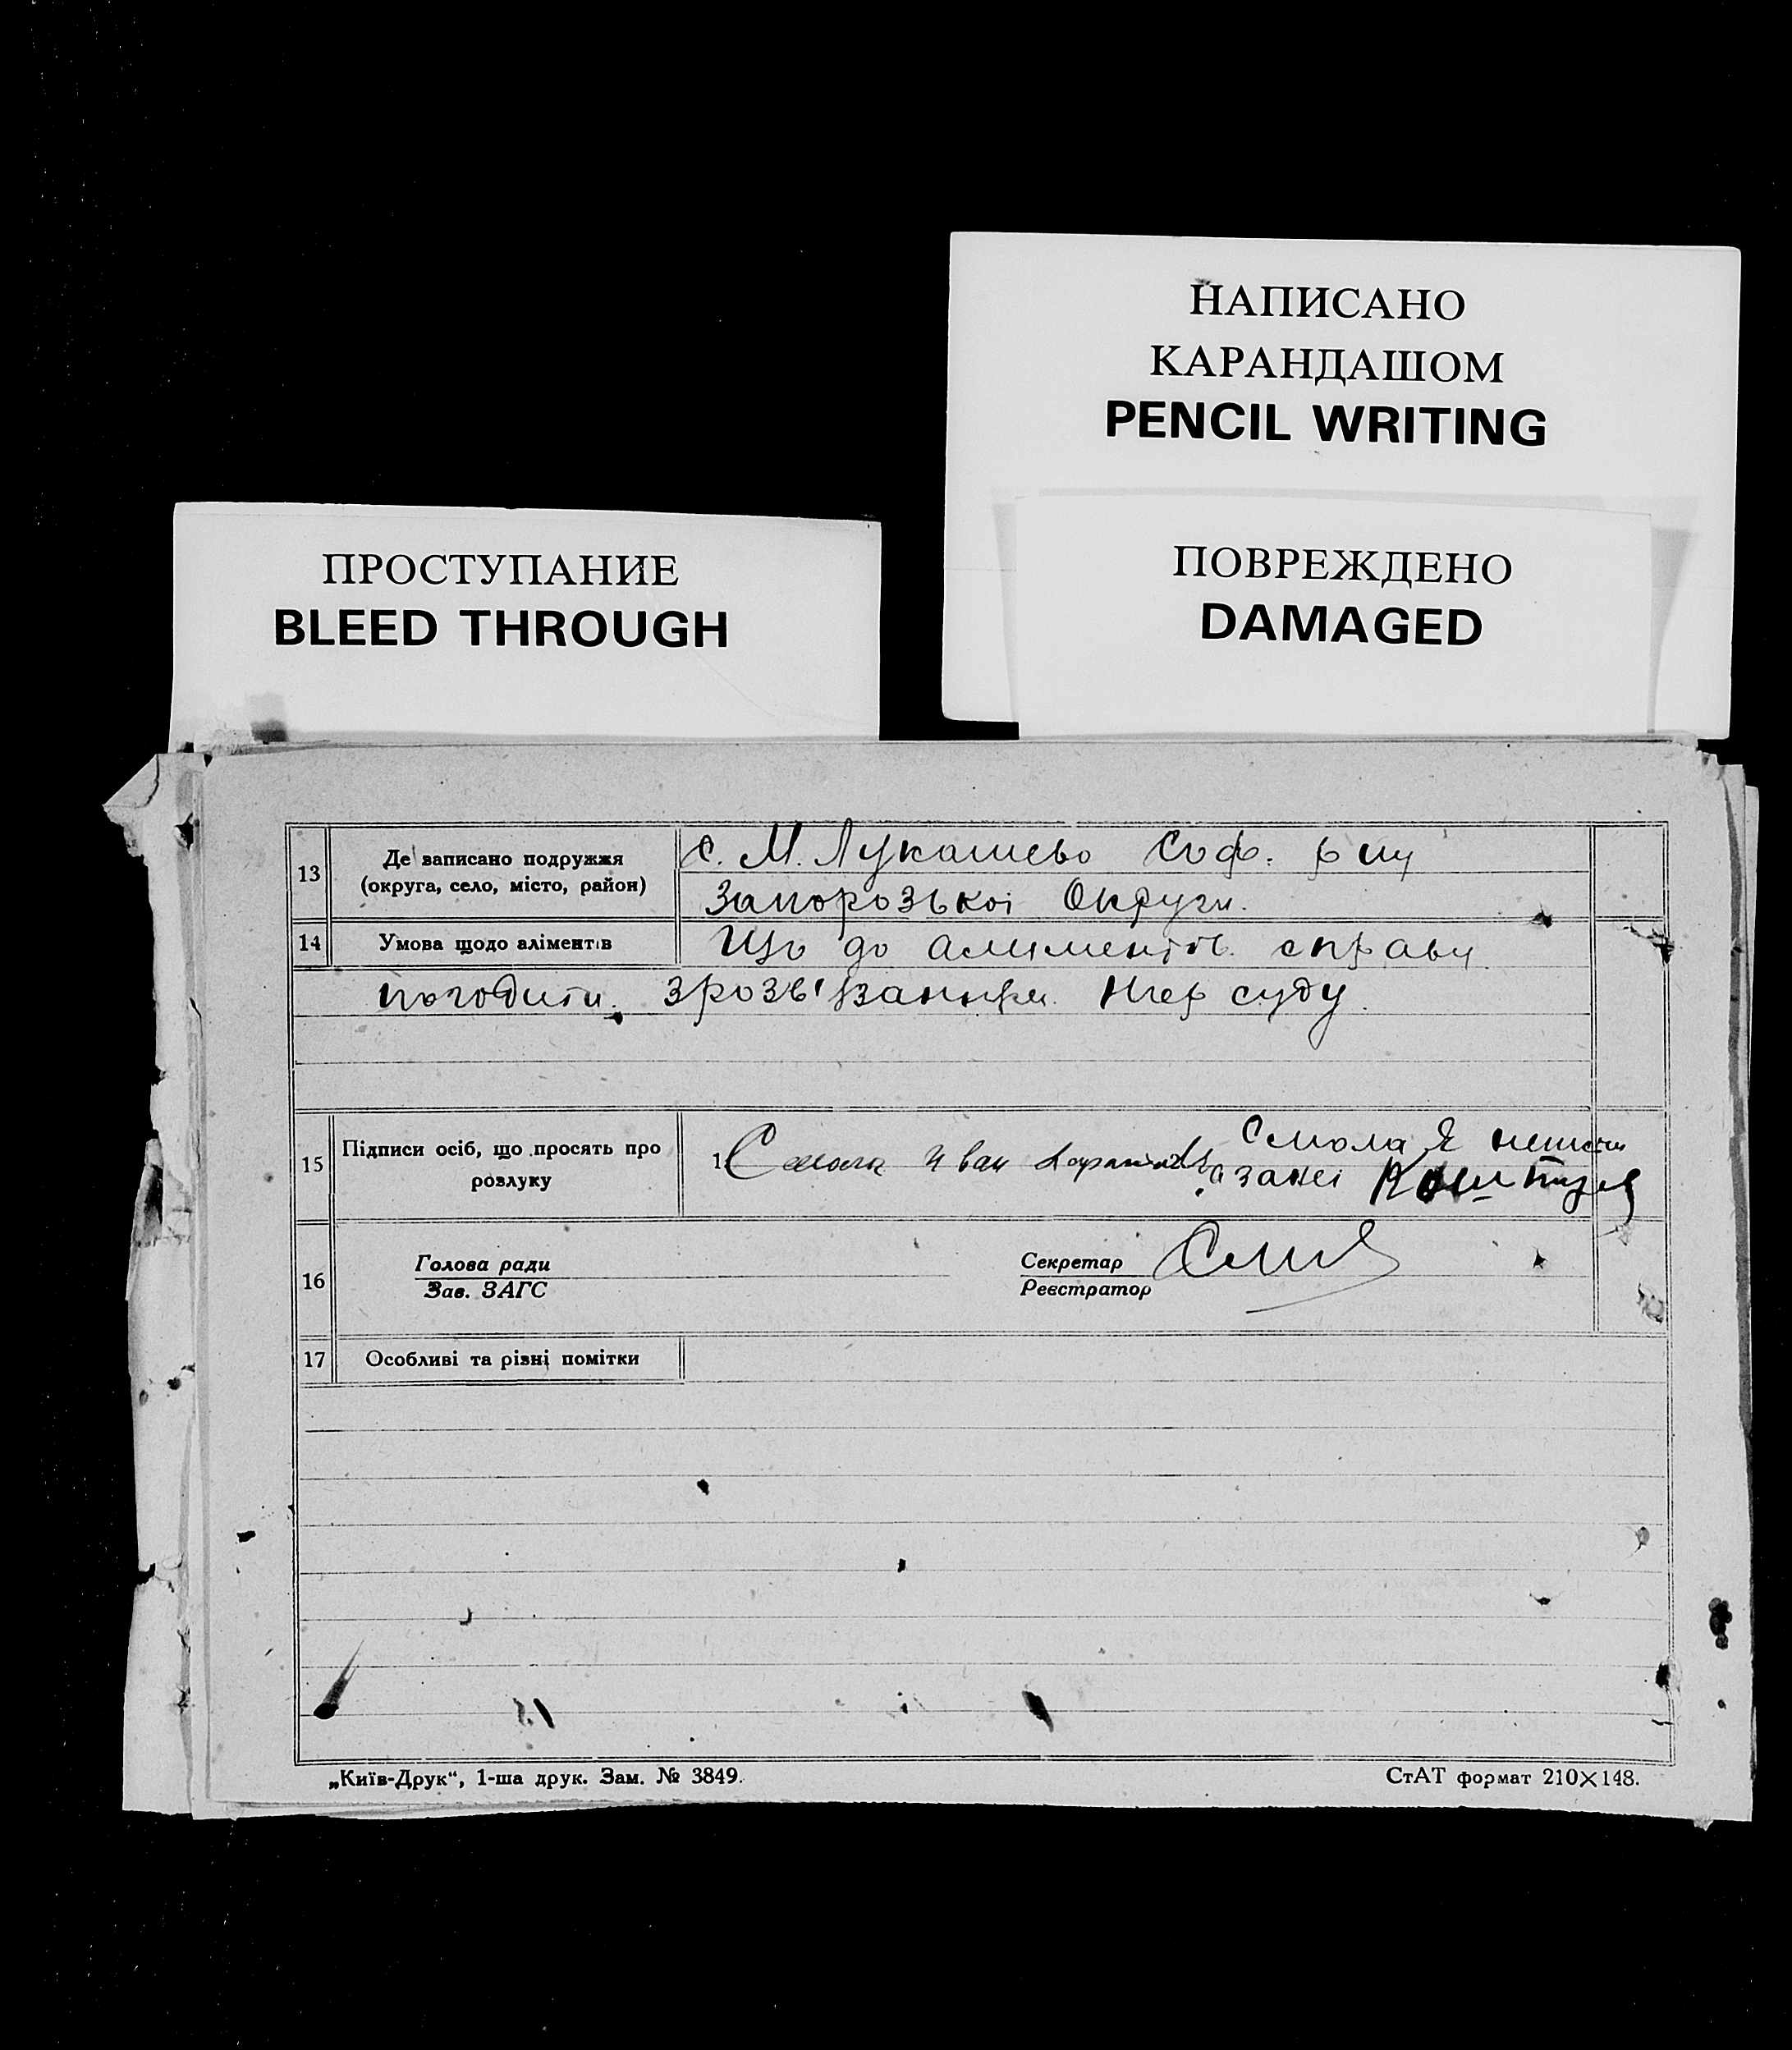 НАПИСАНО
КАРАНДАШОМ
PENCIL WRITING
ПРОСТУПАНИЕ
BLEED THROUGH
ПОВРЕЖДЕНО
DAMAGED
13 Де записано подружжя
(округа, село, місто, район)
с. М. Лукашево Соф. р ну
Запорозькоі Округи.
14 Умова щодо аліментів
Що до алиментів справи
погодити.
суду
15 Підписи осіб, що просять про
розлуку
1. Смола Иван
Смола Я
за неі
16 Голова ради
Зав. ЗАГС
Секретар
Реєстратор
17 Особливі та різні помітки
„Київ-Друк“, 1-ша друк. Зам. № 3849.
СтАТ формат 210×148.